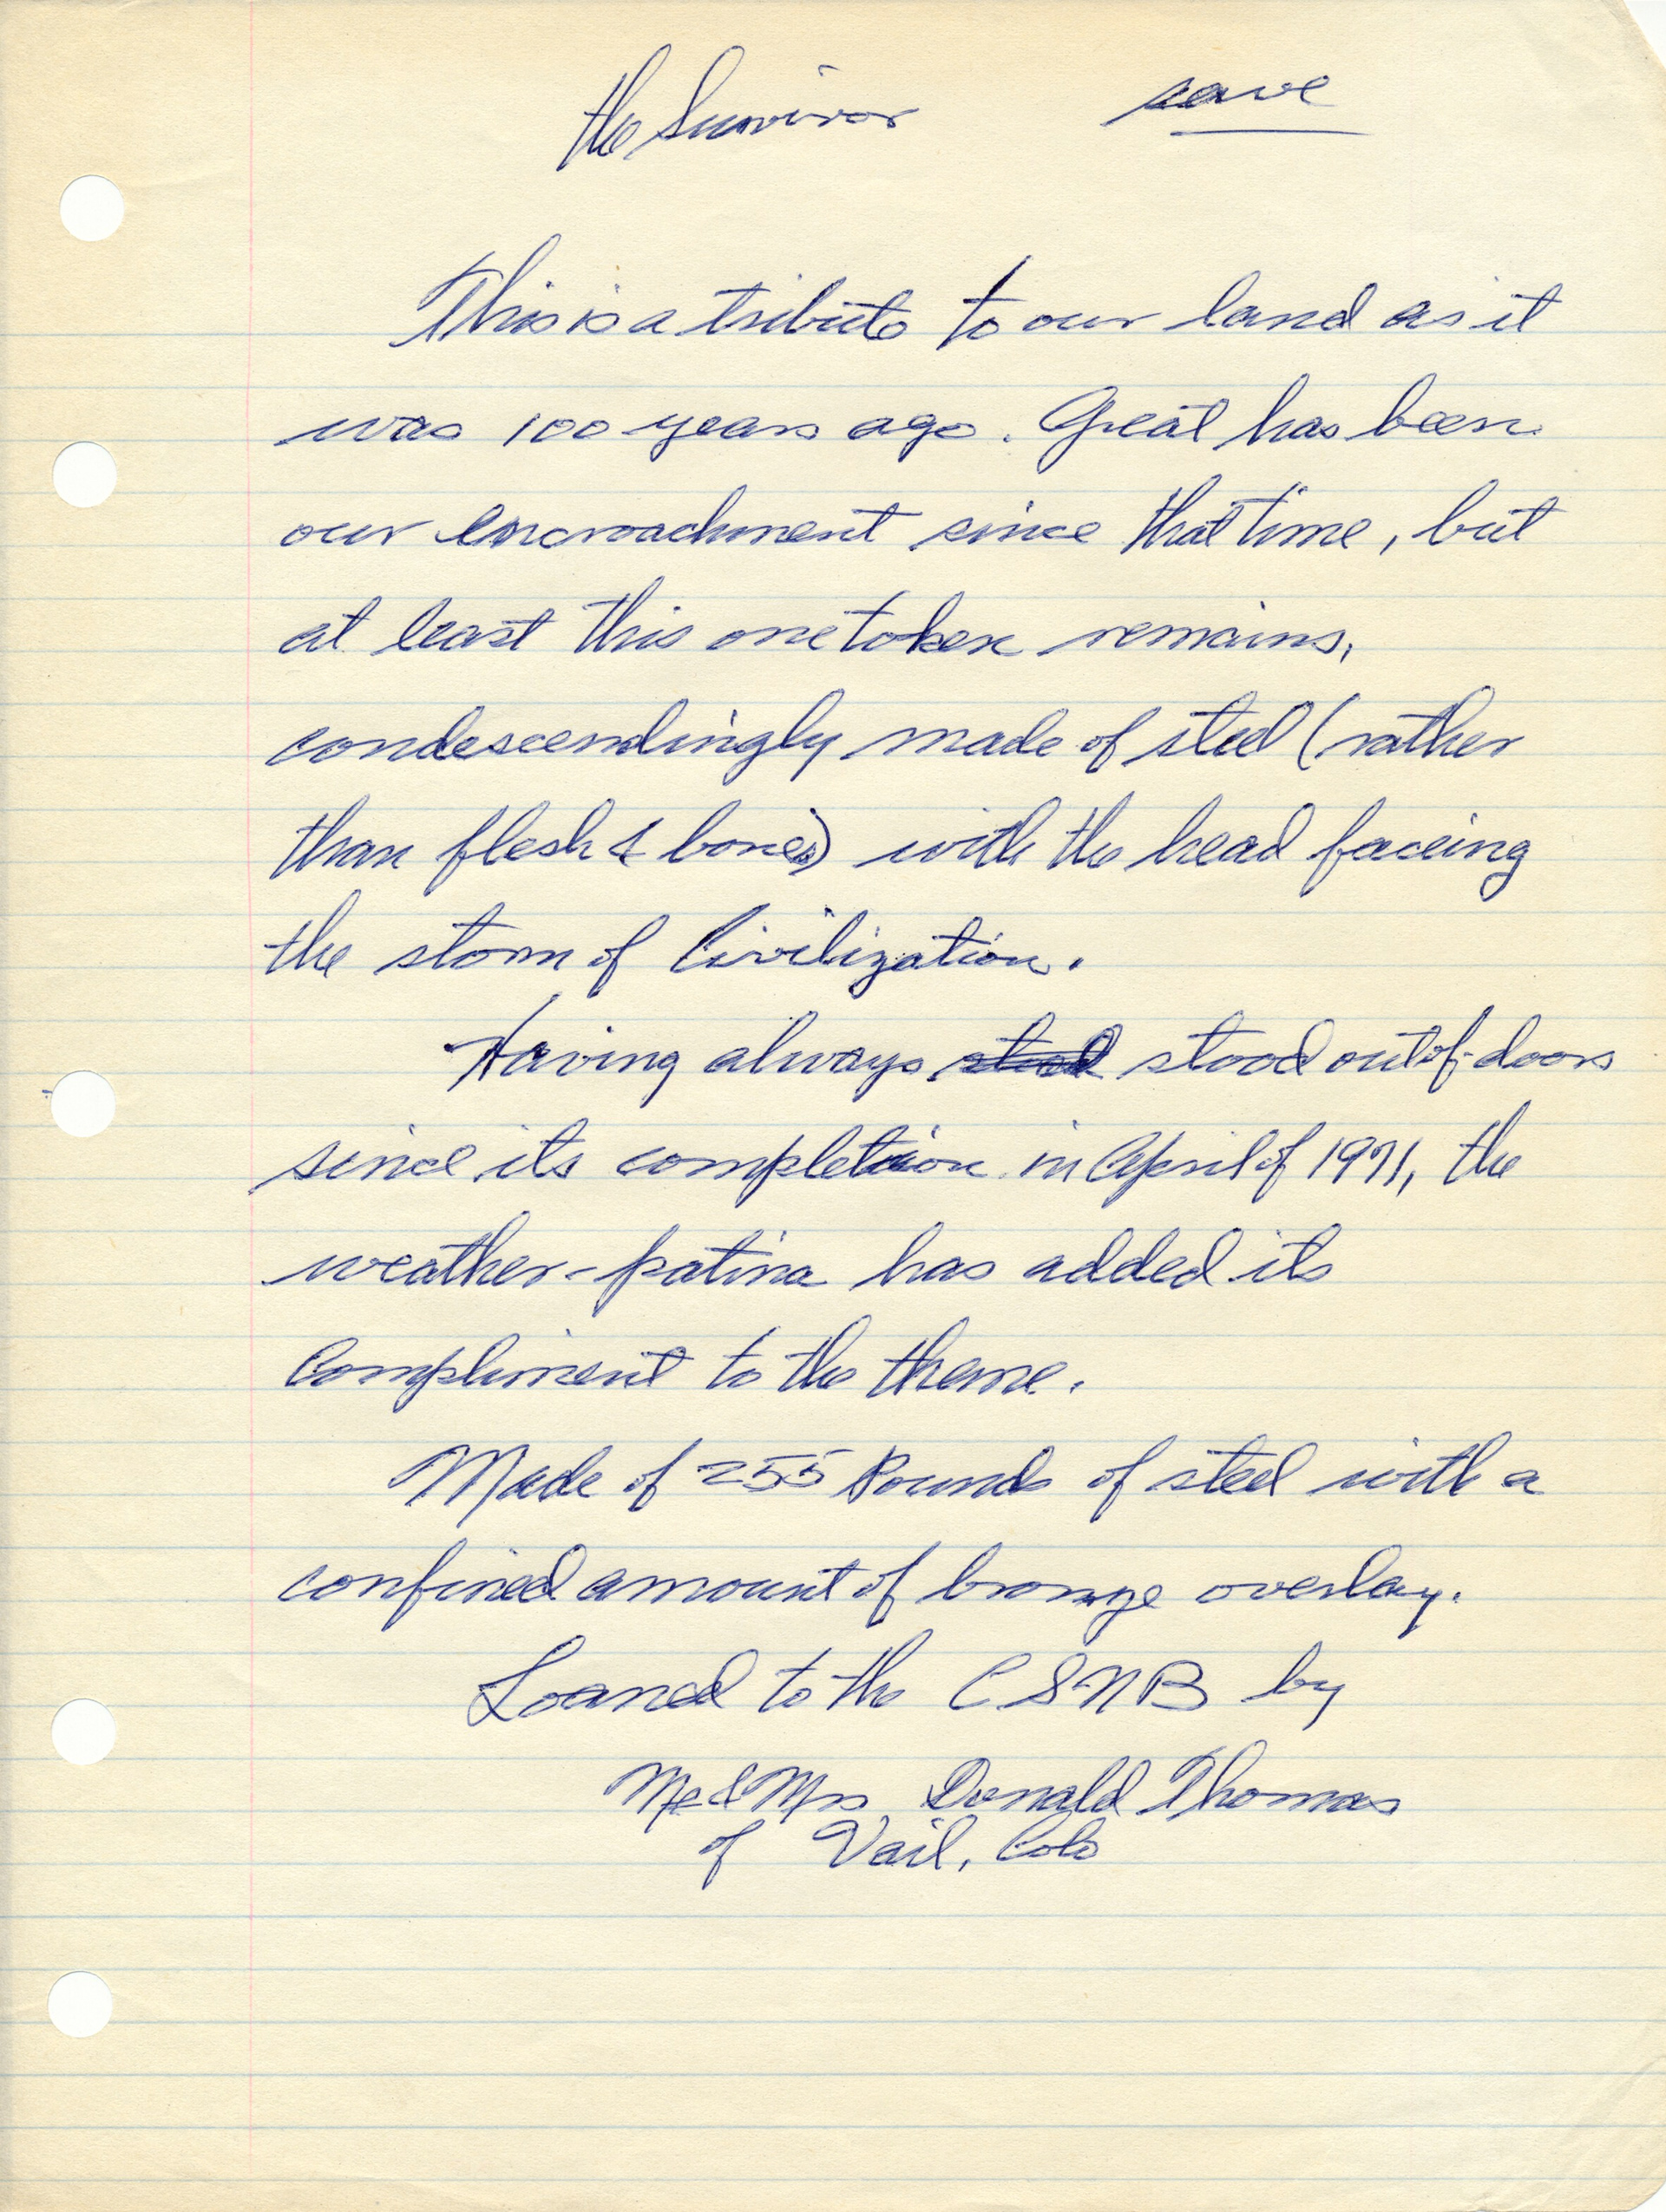 the Survivor save
This is a tribute to our land as it
was 100 years ago. Great has been
our encroachment since that time, but
at least this one token remains,
condescendingly made of steel (rather
than flesh & bone) with the head faceing
the storm of Civilization.
Having always stood stood out of-doors
since its completion in April of 1971, the
weather-patina has added its
Compliment to the theme.
Made of 255 Pounds of steel with a
confined amount of bronze overlay.
Loaned to the CSNB by
Mr & Mrs Donald Thomas
of Vail, Colo